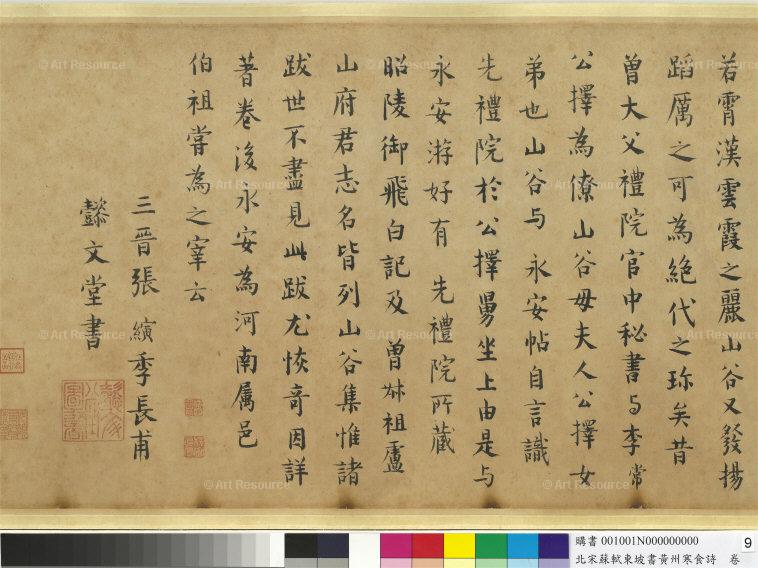 若霄漢雲霞之麗山谷又發揚
蹈厲之可為絕代之珎矣昔
曾大父禮院官中秘書与李常
公擇為僚山谷母夫人公擇女
弟也山谷与永安帖自言識
先禮院於公擇舅坐上由是与
永安游好有先禮院所藏
昭陵御飛白記及曾叔祖盧
山府君志名皆列山谷集惟諸
跋世不盡見此跋尤恢奇因詳
著卷後永安為河南屬邑
伯祖嘗為之宰云
三晉張縯季長甫
懿文堂書
© Art Resource
購書 001001N000000000
北宋蘇軾東坡書黃州寒食詩 卷
9